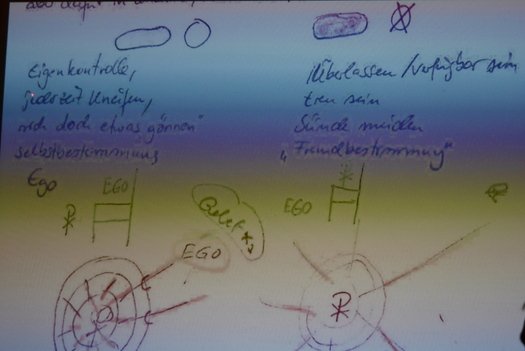 Eigenkontrolle,
jederzeit kneifen,
mich doch etwas gönnen"
selbstbestimmung
Ego
EGO
EGO
Überlassen / verfügbar sein
treu sein
Sünde meiden
„Fremdbestimmung"
EGO
Gebet